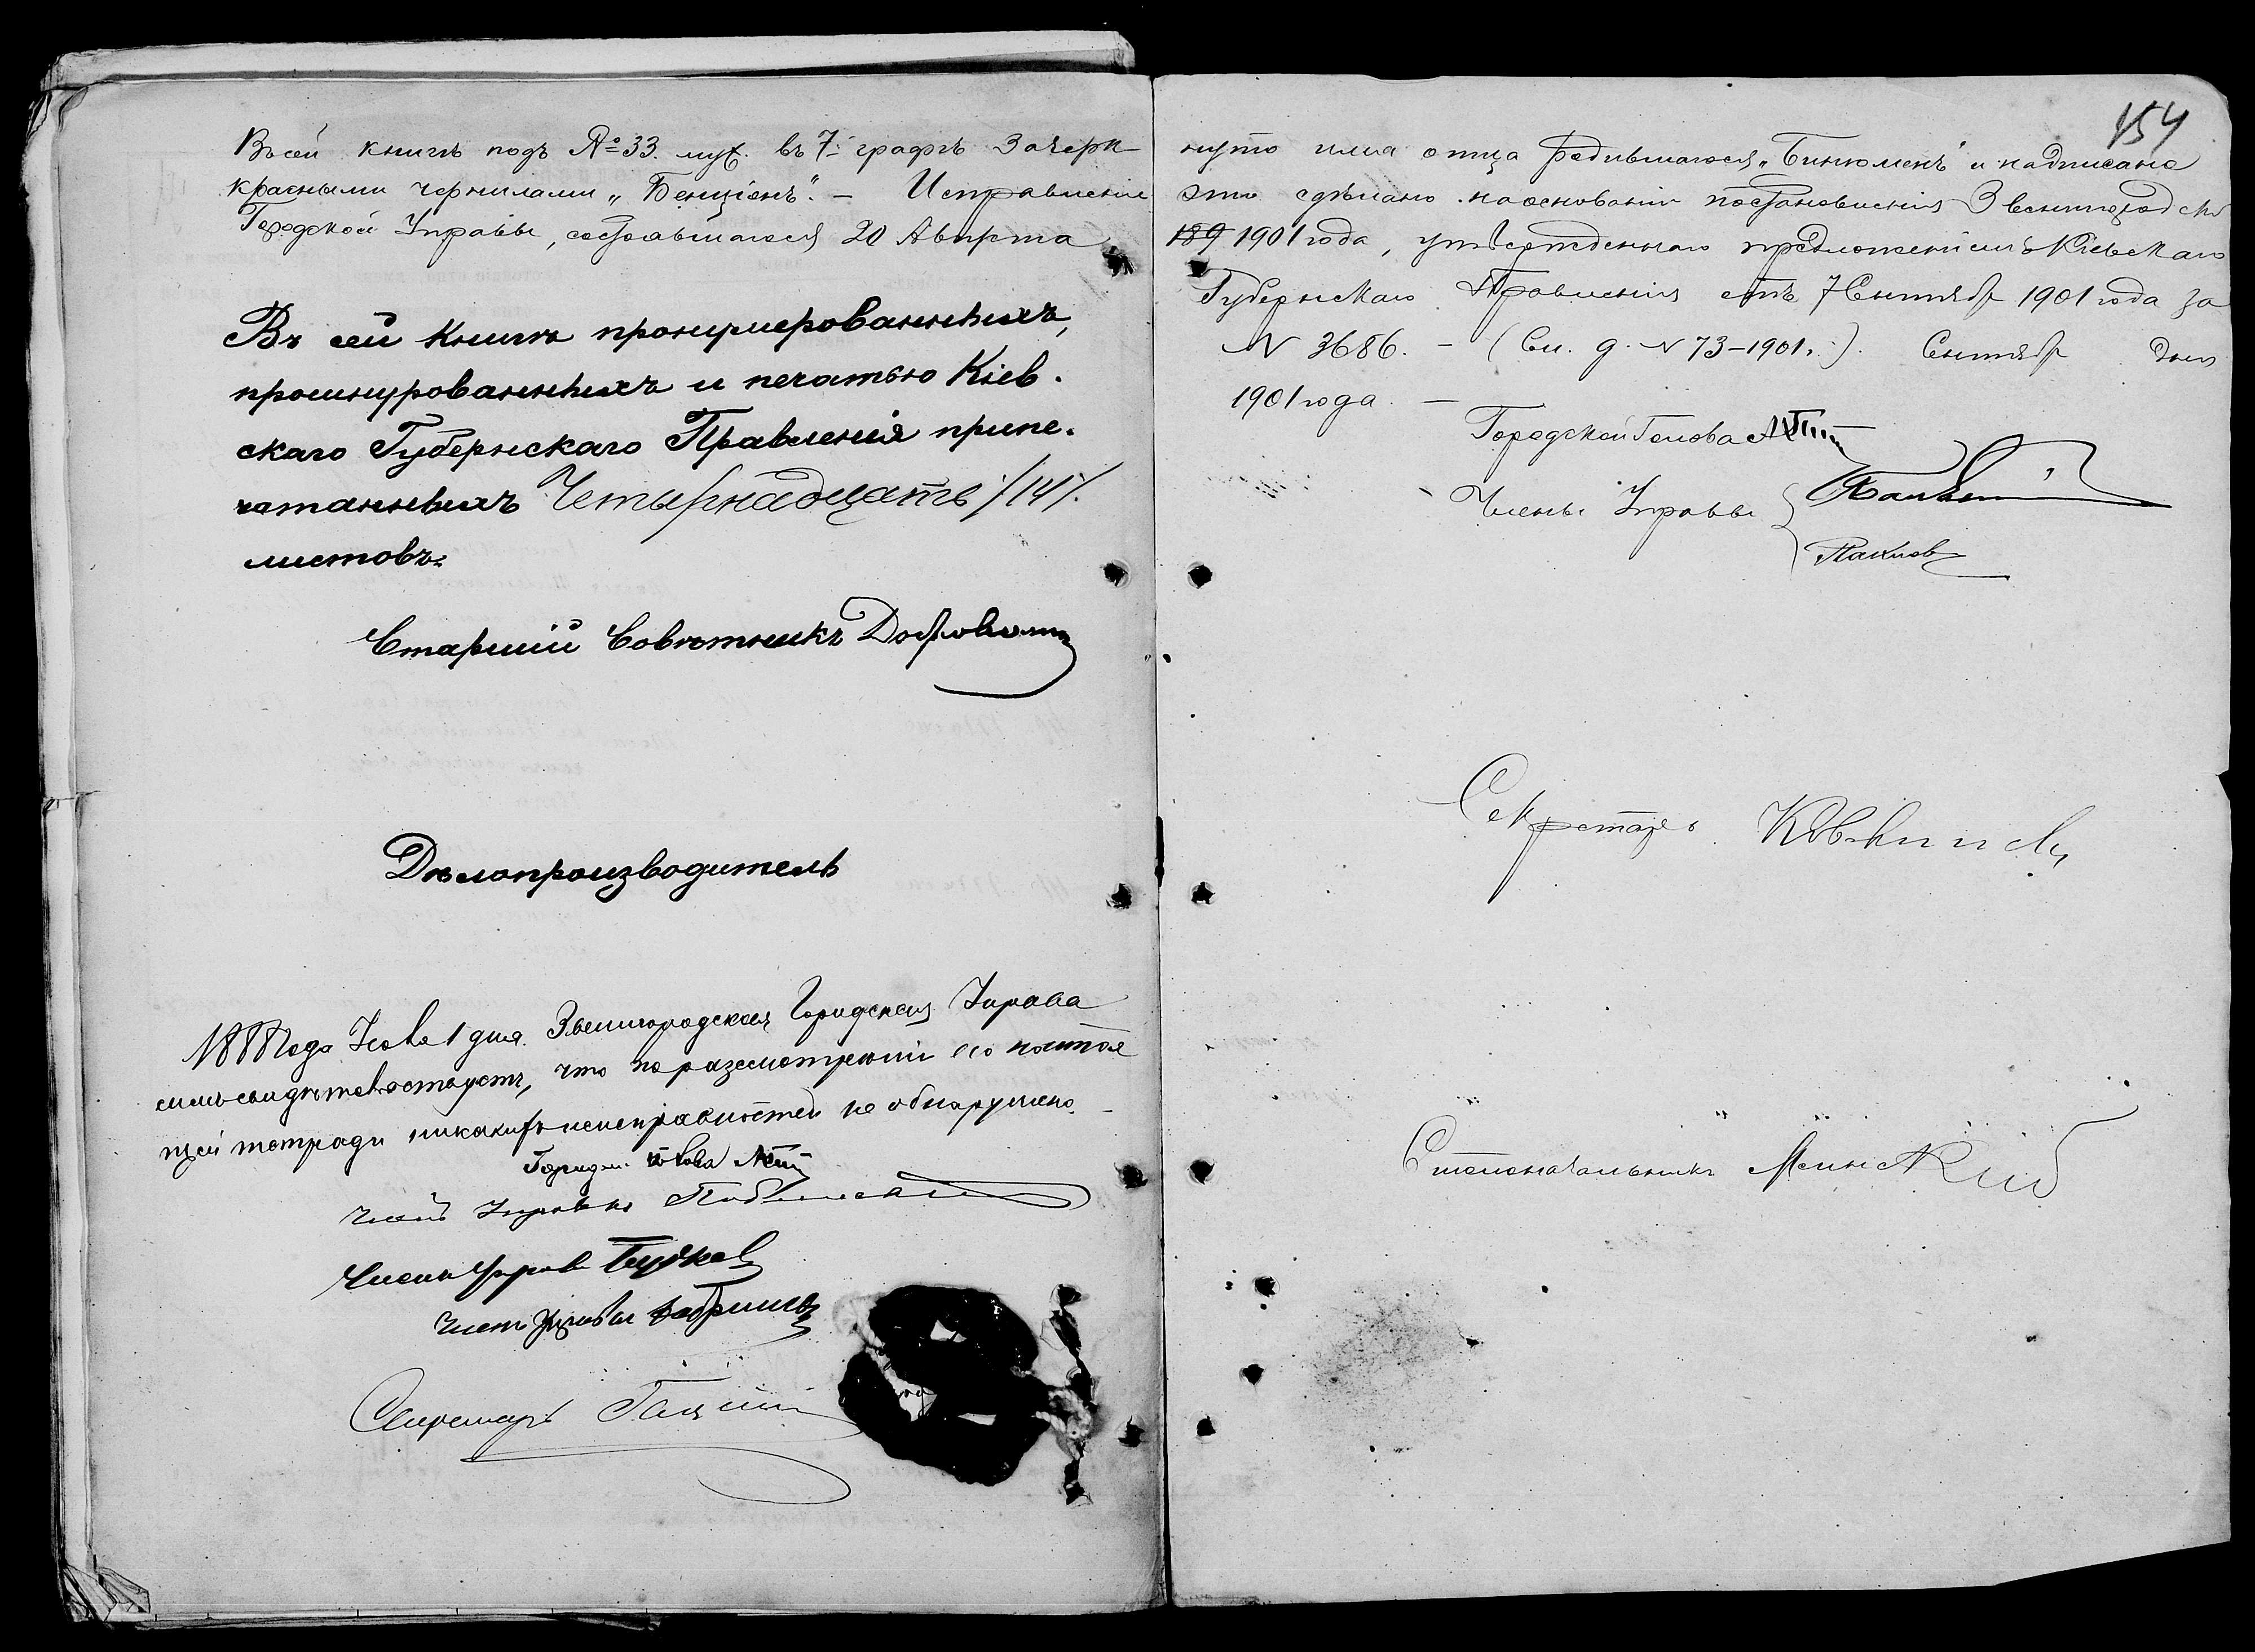 154
Въ сей книгѣ подъ № 33. муж. въ 7-й графѣ Зачерк-
нуто имя отца родившагося „Бинюменъ“ и надписано
красными чернилами „Бенціонъ“. — Исправленіе
это сдѣлано на основаніи постановленія Звенигородской
Городской Управы, состоявшагося 20 Августа
189 1901 года, утвержденнаго предложеніемъ Кіевскаго
Губернскаго Правленія отъ 7 Сентября 1901 года за
N 3686. — (вн. д. N 73-1901.). Сентября дня
1901 года. —
Городской Голова
Члены Управы
Секретарь
Столоначальникъ
Въ сей книгѣ пронумерованныхъ,
прошнурованныхъ и печатью Кіев-
скаго Губернскаго Правленія припе-
чатанныхъ Четырнадцать /14/.
листовъ.
Старшій Совѣтникъ
Дѣлопроизводитель
1888 года 1 дня Звенигородская Городская Управа
симъ свидѣтельствуетъ, что по разсмотрѣніи ею настоя
щей тетради никакихъ неисправностей не обнаружено. —
Городск. Голова
Членъ Управы
Членъ Управы
Членъ Управы
Секретарь